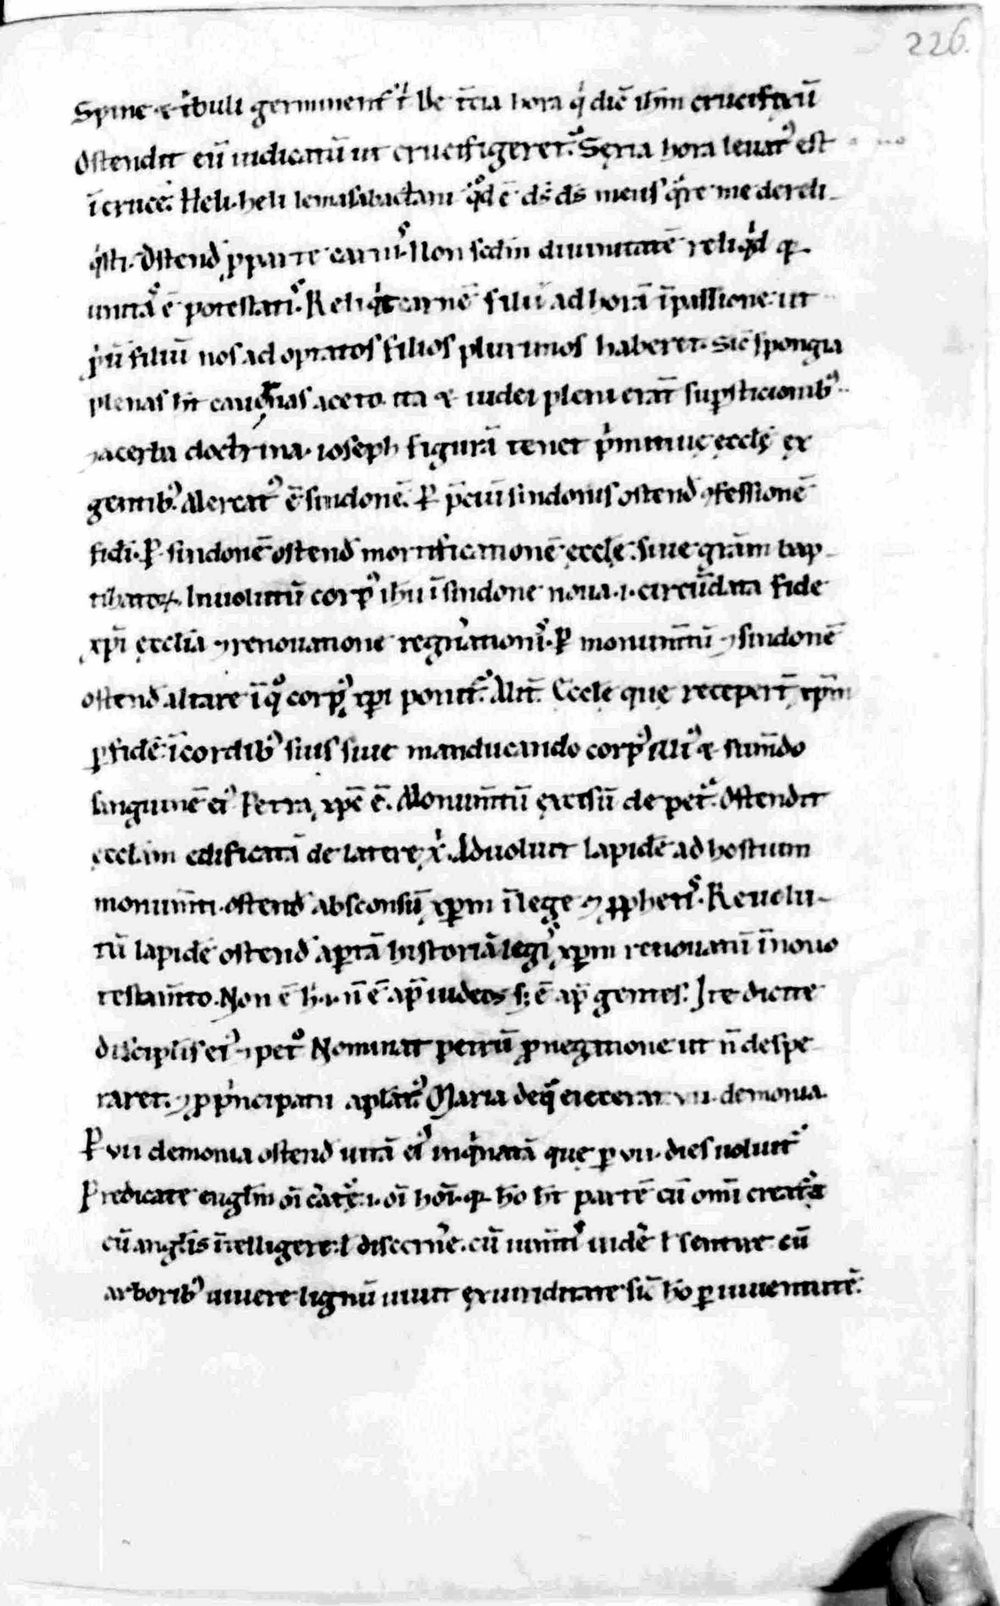 226.
Spine ⁊ t'buli germinent t' De t̄cia hora q' dic̄ ih̄m crucifixū
Ostendit eū iudicatū ut crucifigeret᷒. Sexta hora leuat᷒ est
ī cruce. Heli heli lemasabactani q͛d ē d̄s d̄s meus q͛re me dereli-
q'sti. Ostend̄ p̱ parte carnis. Non sedm̄ diuinitatē reliq'd q̱
unita ē potestati. Reliq't carnē filii ad horā ī passione ut
p̱ ū filiū nos adoptatos filios plurimos haberet. Sic̄ spongia
plenas h̄t cauernas aceto ita ⁊ iudei pleni erāt supsticionib᷒
⁊ acerba doctrina. ioseph figurā tenet p'mitiuę ecclę ex
gentib᷒. Mercat᷒ ē sindonē. P̱ p̄ciū sindonis ostend̄ ꝯfessionē
fidi. P̱ sindonē ostend̄ mortificationē ecclę. siue gr̄am bap-
tisatoꝝ. Inuolutū corp᷒ ih̄u ī sindone noua .i. circūdata fide
xp̄i ecclīa ⁊ renouatione regn̄ationis. P̱ monumtū ⁊ sindonē
ostend̄ altare ī q͛ corp᷒ xp̄i ponit᷒. Alit̄. Eccle que recepert̄ xp̄m
p̱ fidē ī cordib᷒ suis siue manducando corp᷒ illi᷒ ⁊ sumdo
sanguinē ei᷒. Petra xp̄c ē. Monumtū excisū de pet͛. Ostendit
eccl̄am edificatā de latere x'. Aduoluit lapidē ad hostium
monumti. ostend̄ absconsū xp̄m ī lege ⁊ p̱phetis. Reuolu-
tū lapidē ostend̄ ap̱tā historiā legis xp̄m renouatū ī nouo
testam̄to. Non ē h' .i. n̄ ē ap̄ iudeos s; ē ap̄ gentes. Ite dicite
discipl̄is ei᷒ ⁊ pet͛. Nominat petrū p̱ negatione ut n̄ despe-
raret. ⁊ p̱ p'ncipatu apl̄at᷒. Maria de q̄ eiecerat vii demonia.
P̱ vii demonia ostend̄ uitā ei᷒ inq'natā que p̱ vii dies uoluit᷒
Predicate euglm̄ om̄i c'atę .i. om̄i hoī. q̱ h̄o h̄t partē cū omī creat͛a
cū anglis īntelligere l̵ discern̄e. cū iumtis uidē l̵ sentire cū
arborib᷒ uiuere lignū uiuit ex uiriditate sic̄ h̄o p̱ iuuentutē.